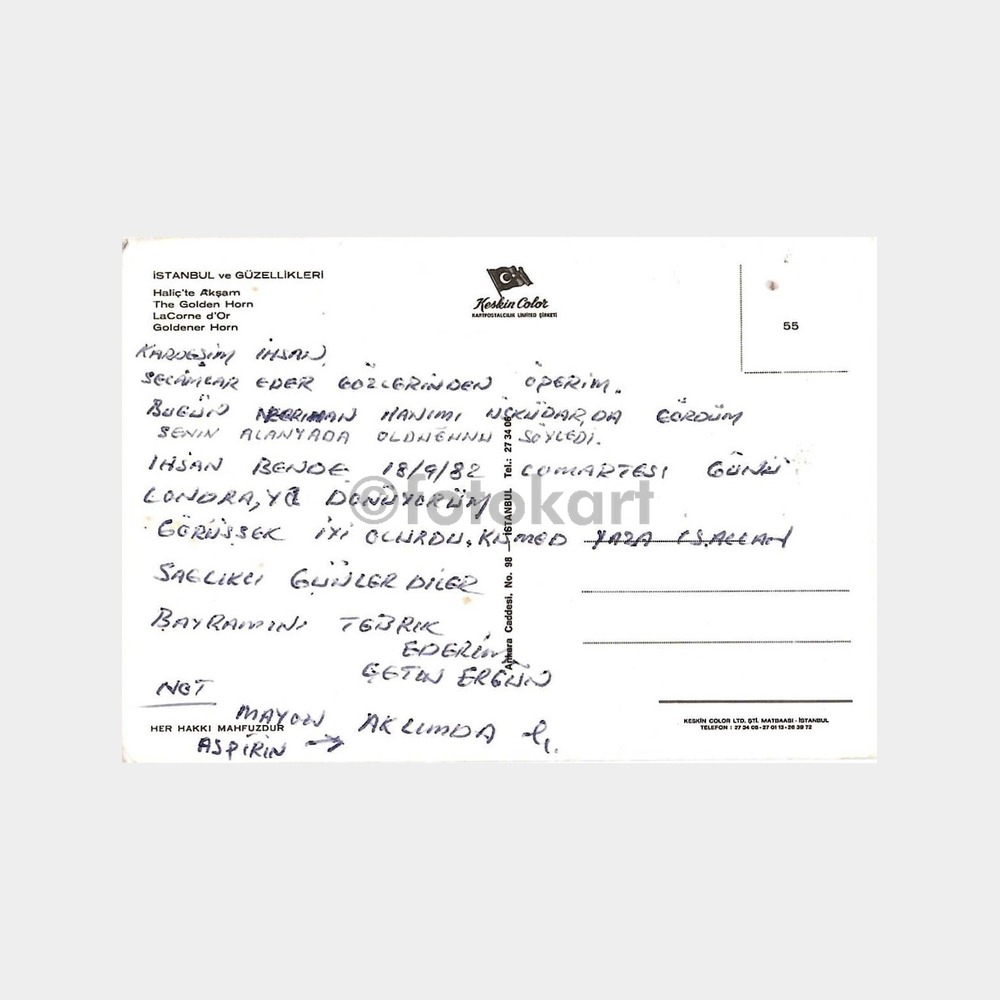 İSTANBUL ve GÜZELLİKLERİ
Haliç'te Akşam
The Golden Horn
LaCorne d'Or
Goldener Horn
Keskin Color
KARTPOSTALCILIK LİMİTED ŞİRKETİ
55
KARDEŞİM İHSAN,
SELAMLAR EDER GÖZLERİNDEN ÖPERİM.
BUGÜN NERİMAN HANIMI ÜSKÜDAR,DA GÖRDÜM
SENİN ALANYADA OLDUĞUNU SÖYLEDİ.
IHSAN BENDE 18/9/82 CUMARTESI GÜNÜ
LONDRA,YA DÖNÜYORUM
GÖRÜŞSEK İYİ OLURDU. KISMED YAZA İŞALLAH
SAGLIKLI GÜNLER DILER
BAYRAMINI TEBRIK
EDERIM
ÇETIN ERGÜN
NOT
MAYON AKLIMDA
ASPIRIN →
HER HAKKI MAHFUZDUR
Ankara Caddesi, No. 98 — İSTANBUL Tel.: 27 34 06
KESKIN COLOR LTD. ŞTİ. MATBAASI - İSTANBUL
TELEFON : 27 34 05 - 27 01 13 - 26 39 72
©fotokart